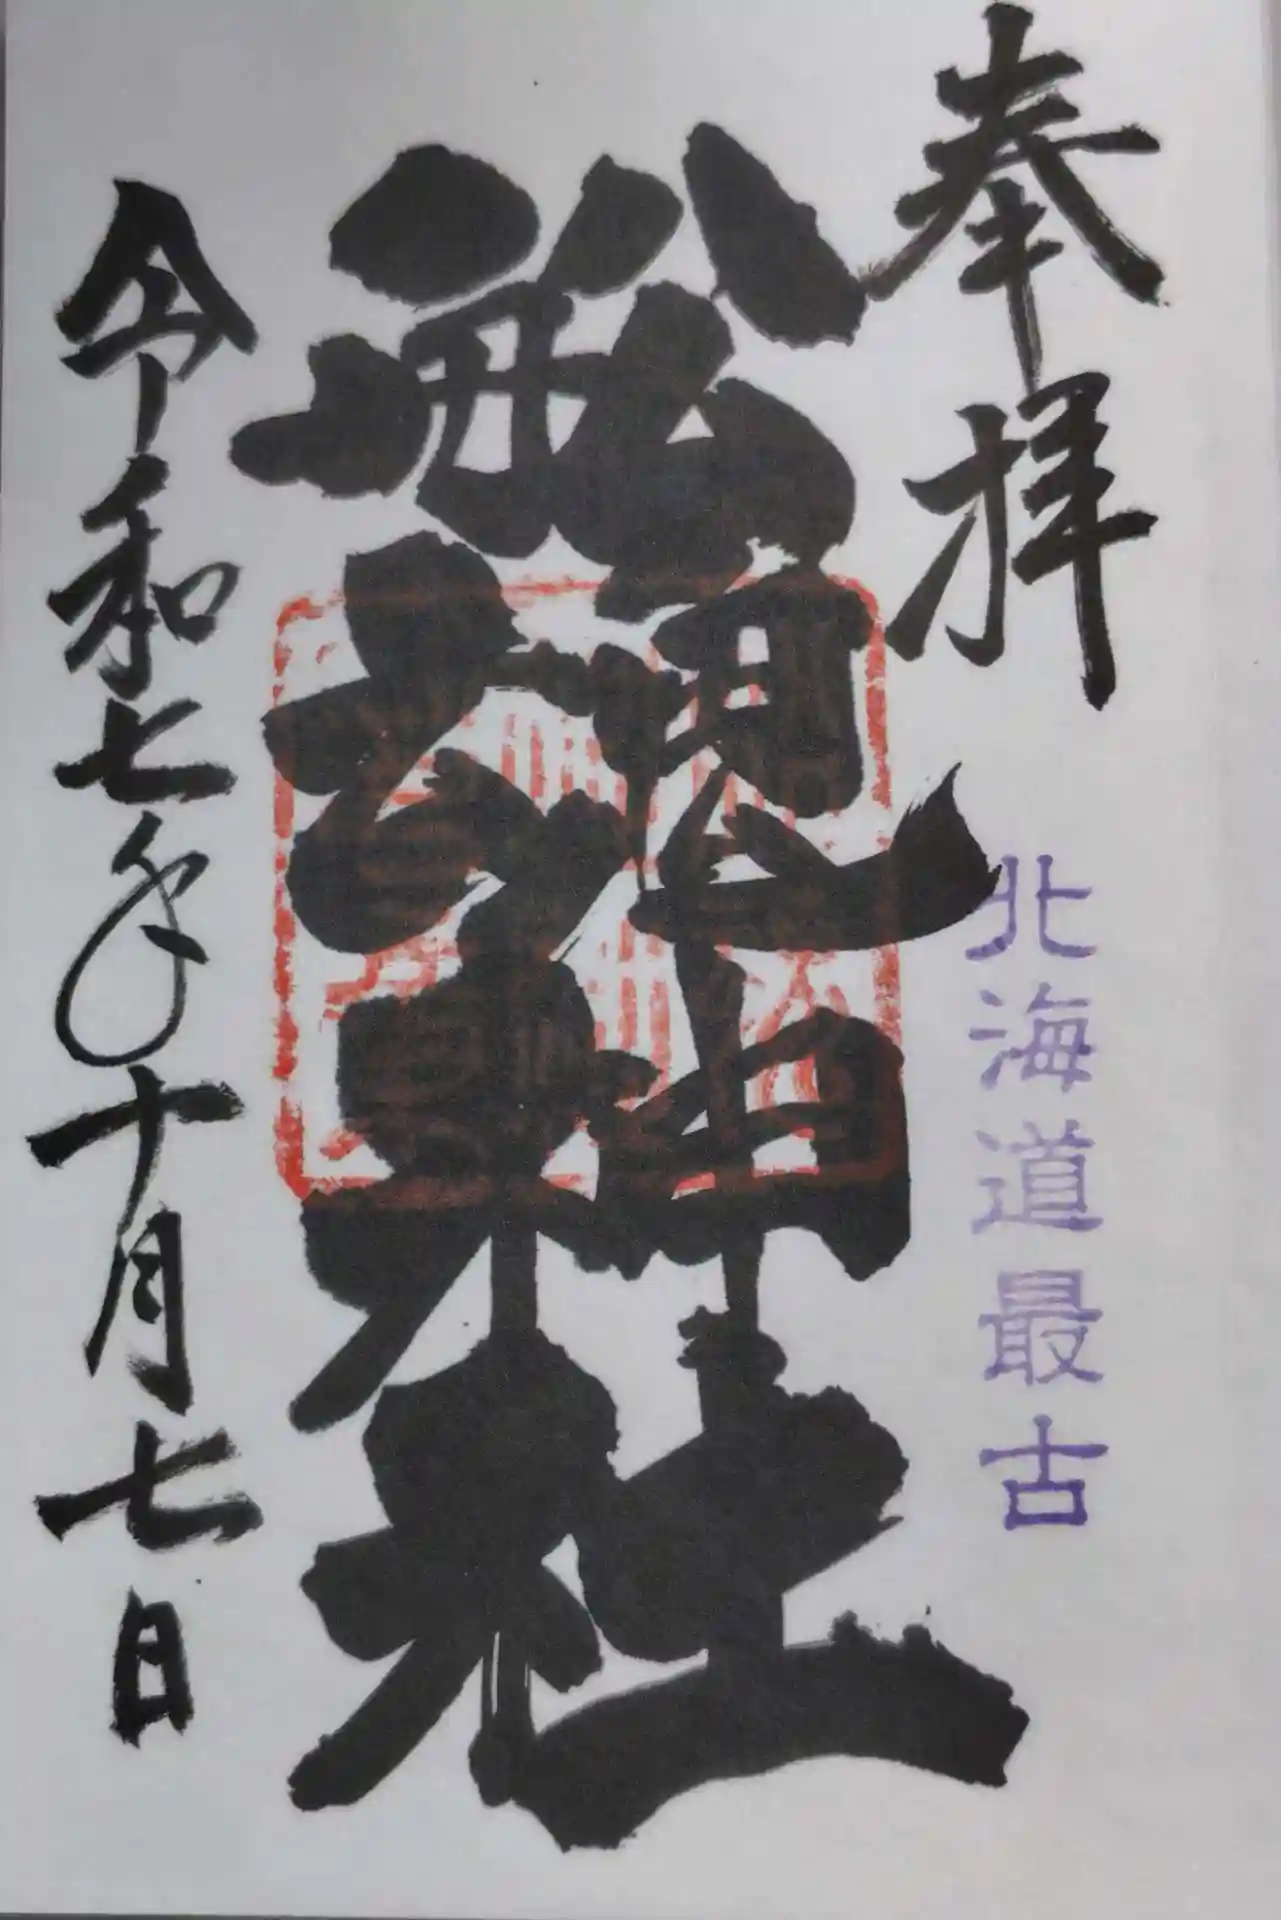 奉拝
北海道最古
船魂神社
令和七年十月七日